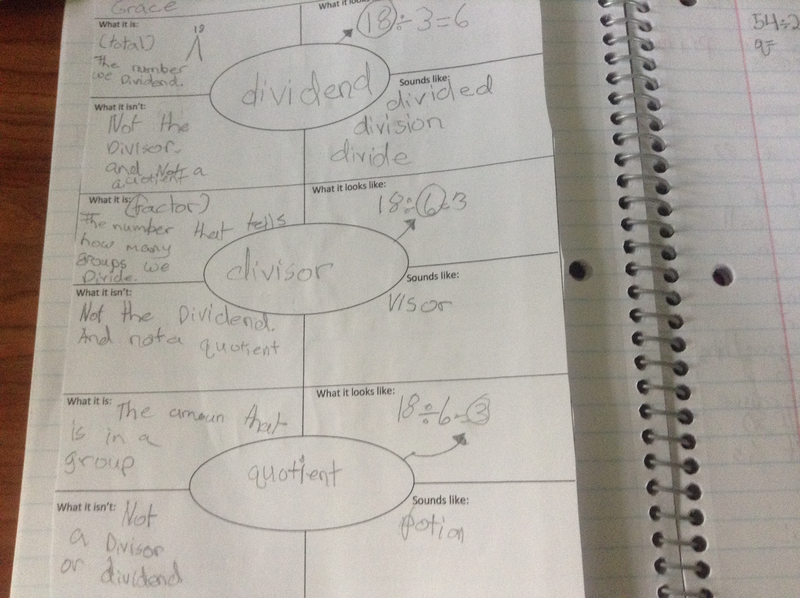 Grace
What it is:
(total) 18
The number
we Dividend.
What it loo
18 ÷ 3 = 6
dividend
What it isn't:
Not the
Divisor.
and Not a
quotient a
Sounds like:
divided
division
divide
What it is:
(factor)
The number that tells
how many
groups we
Divide.
What it looks like:
18 ÷ 6 = 3
divisor
What it isn't:
Not the Dividend.
And not a quotient
Sounds like:
Visor
What it is:
The amoun that
is in a
group
What it looks like:
18 ÷ 6 = 3
quotient
What it isn't:
Not
a Divisor
or dividend
Sounds like:
potion
54÷2